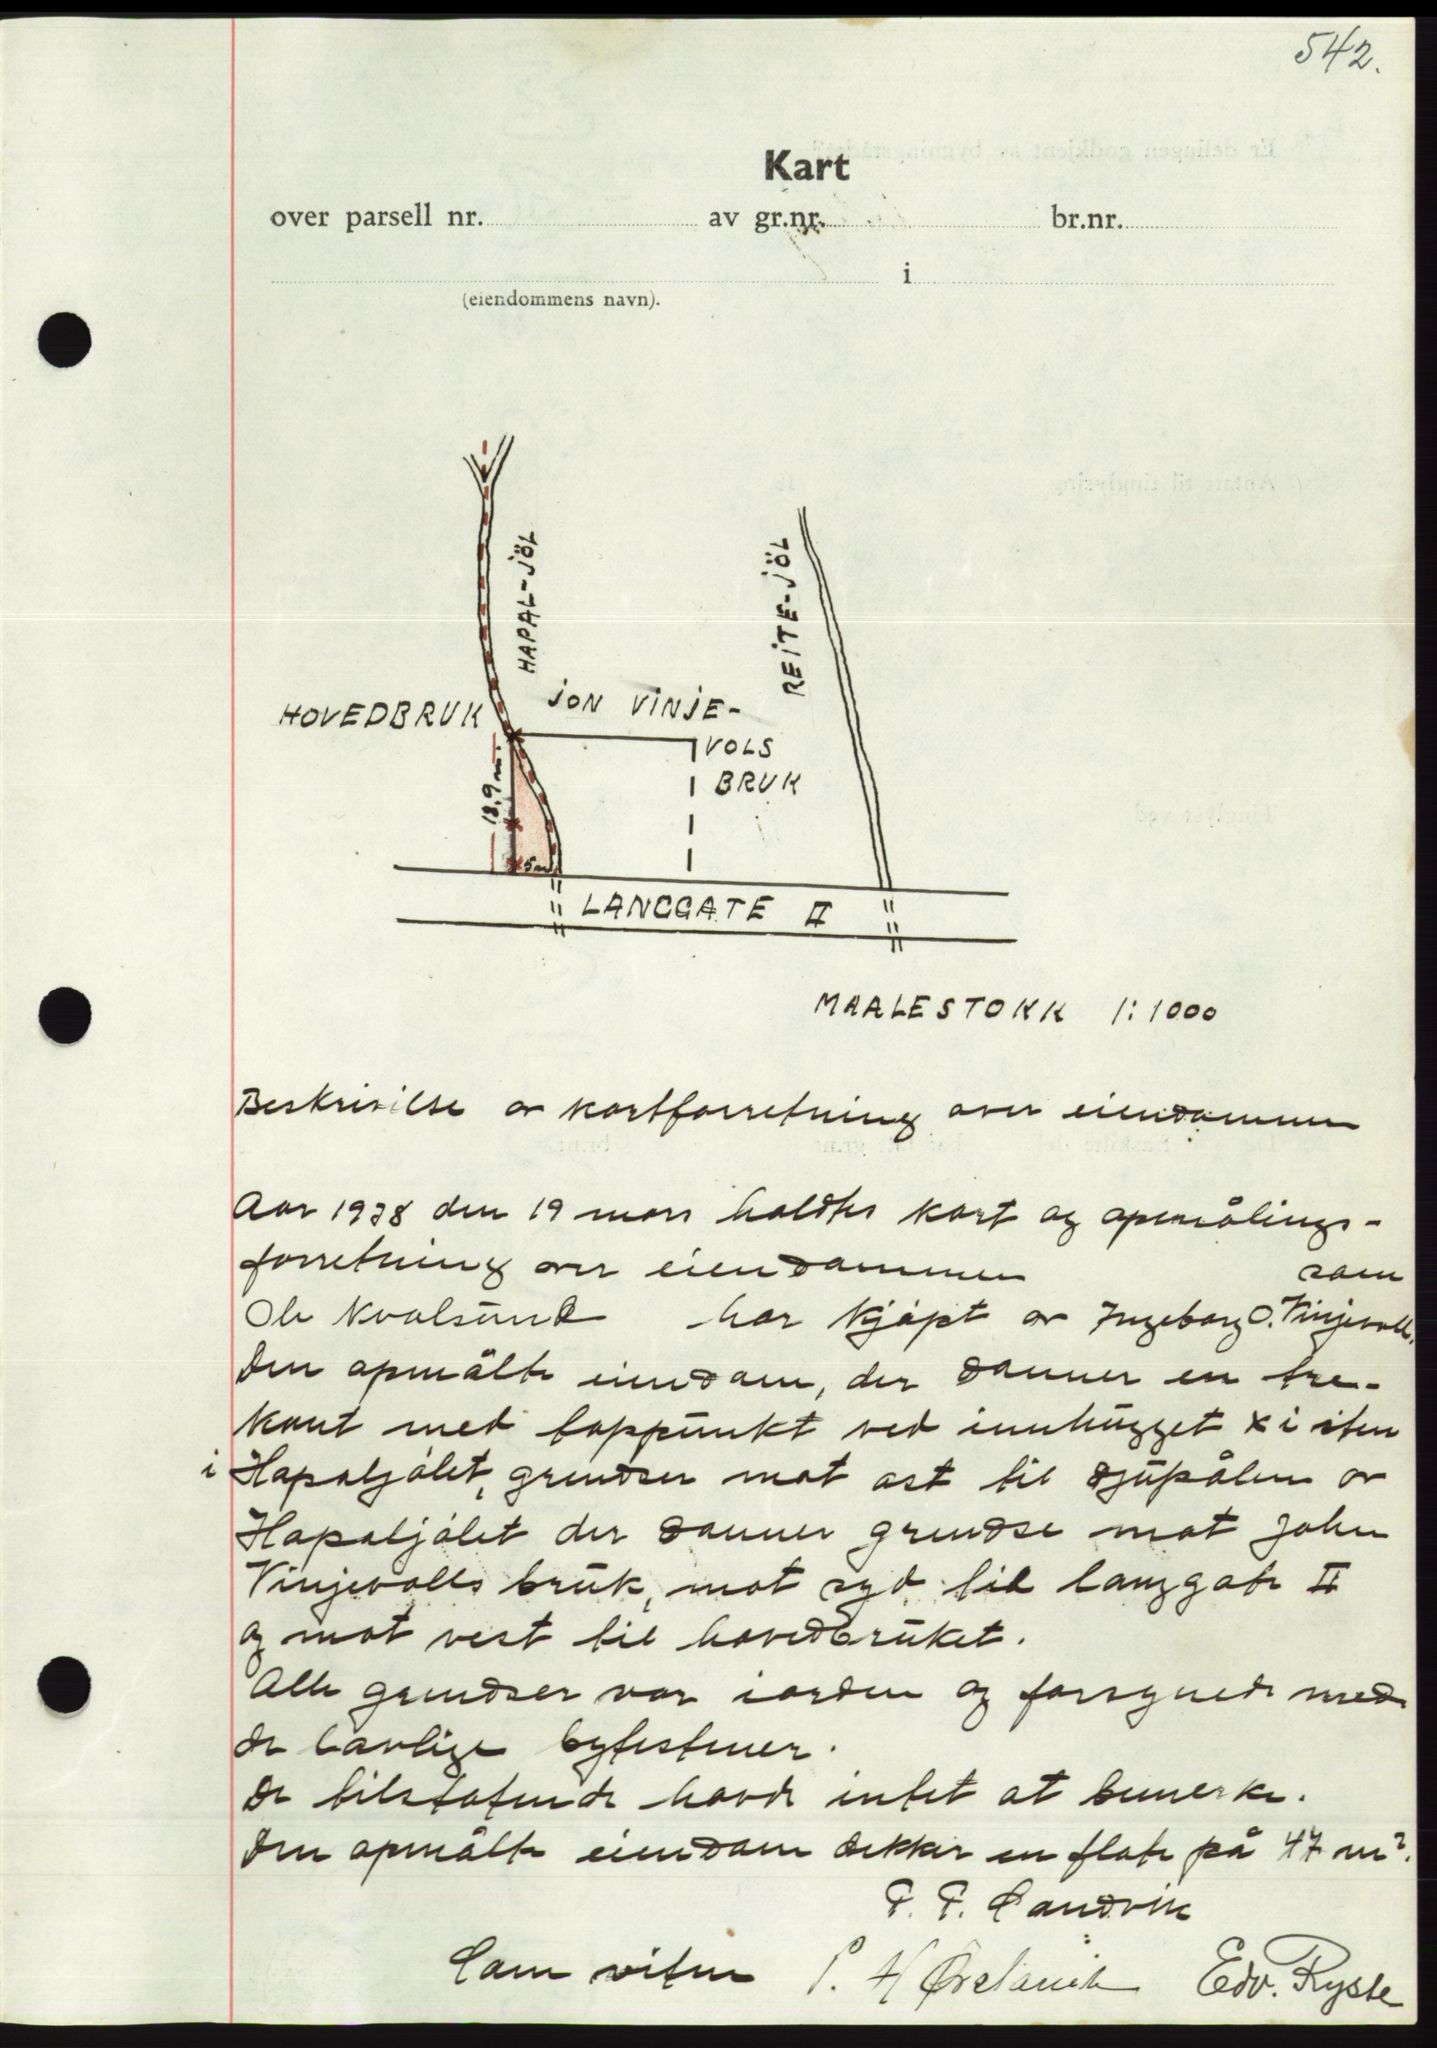 542.
Kart
over parsell nr. av gr.nr. br.nr.
i
(eiendommens navn).
HAPAL-JÖL
REITE-JÖL
HOVEDBRUK
JON VINJE-
VOLS
BRUK
18,9 m.
5 m
LANGGATE II
MAALESTOKK 1:1000
Beskrivilse av kartforretning over eiendommen
Aar 1938 den 19 mars holdtes kart og opmålings-
forretning over eiendommen som
Ole Kvalsund har kjöpt av Ingeborg O. Vinjevoll.
Den opmålte eiendom, der danner en tre-
kant med toppunkt ved innhugget x i sten
i Hapaljölet, grendser mot ost til djupålen av
Hapaljölet der danner grendse mot John
Vinjevolls bruk, mot syd til langgate II
og mot vest til hovedbruket.
Alle grendser var iorden og forsynede med
de lovlige bytestener.
De tilstötende havde intet at bemerke.
Den opmålte eiendom dekker en flate på 47 m².
P. P. Sandvik
Som vitner P. H Ørstavik Edv. Ryste